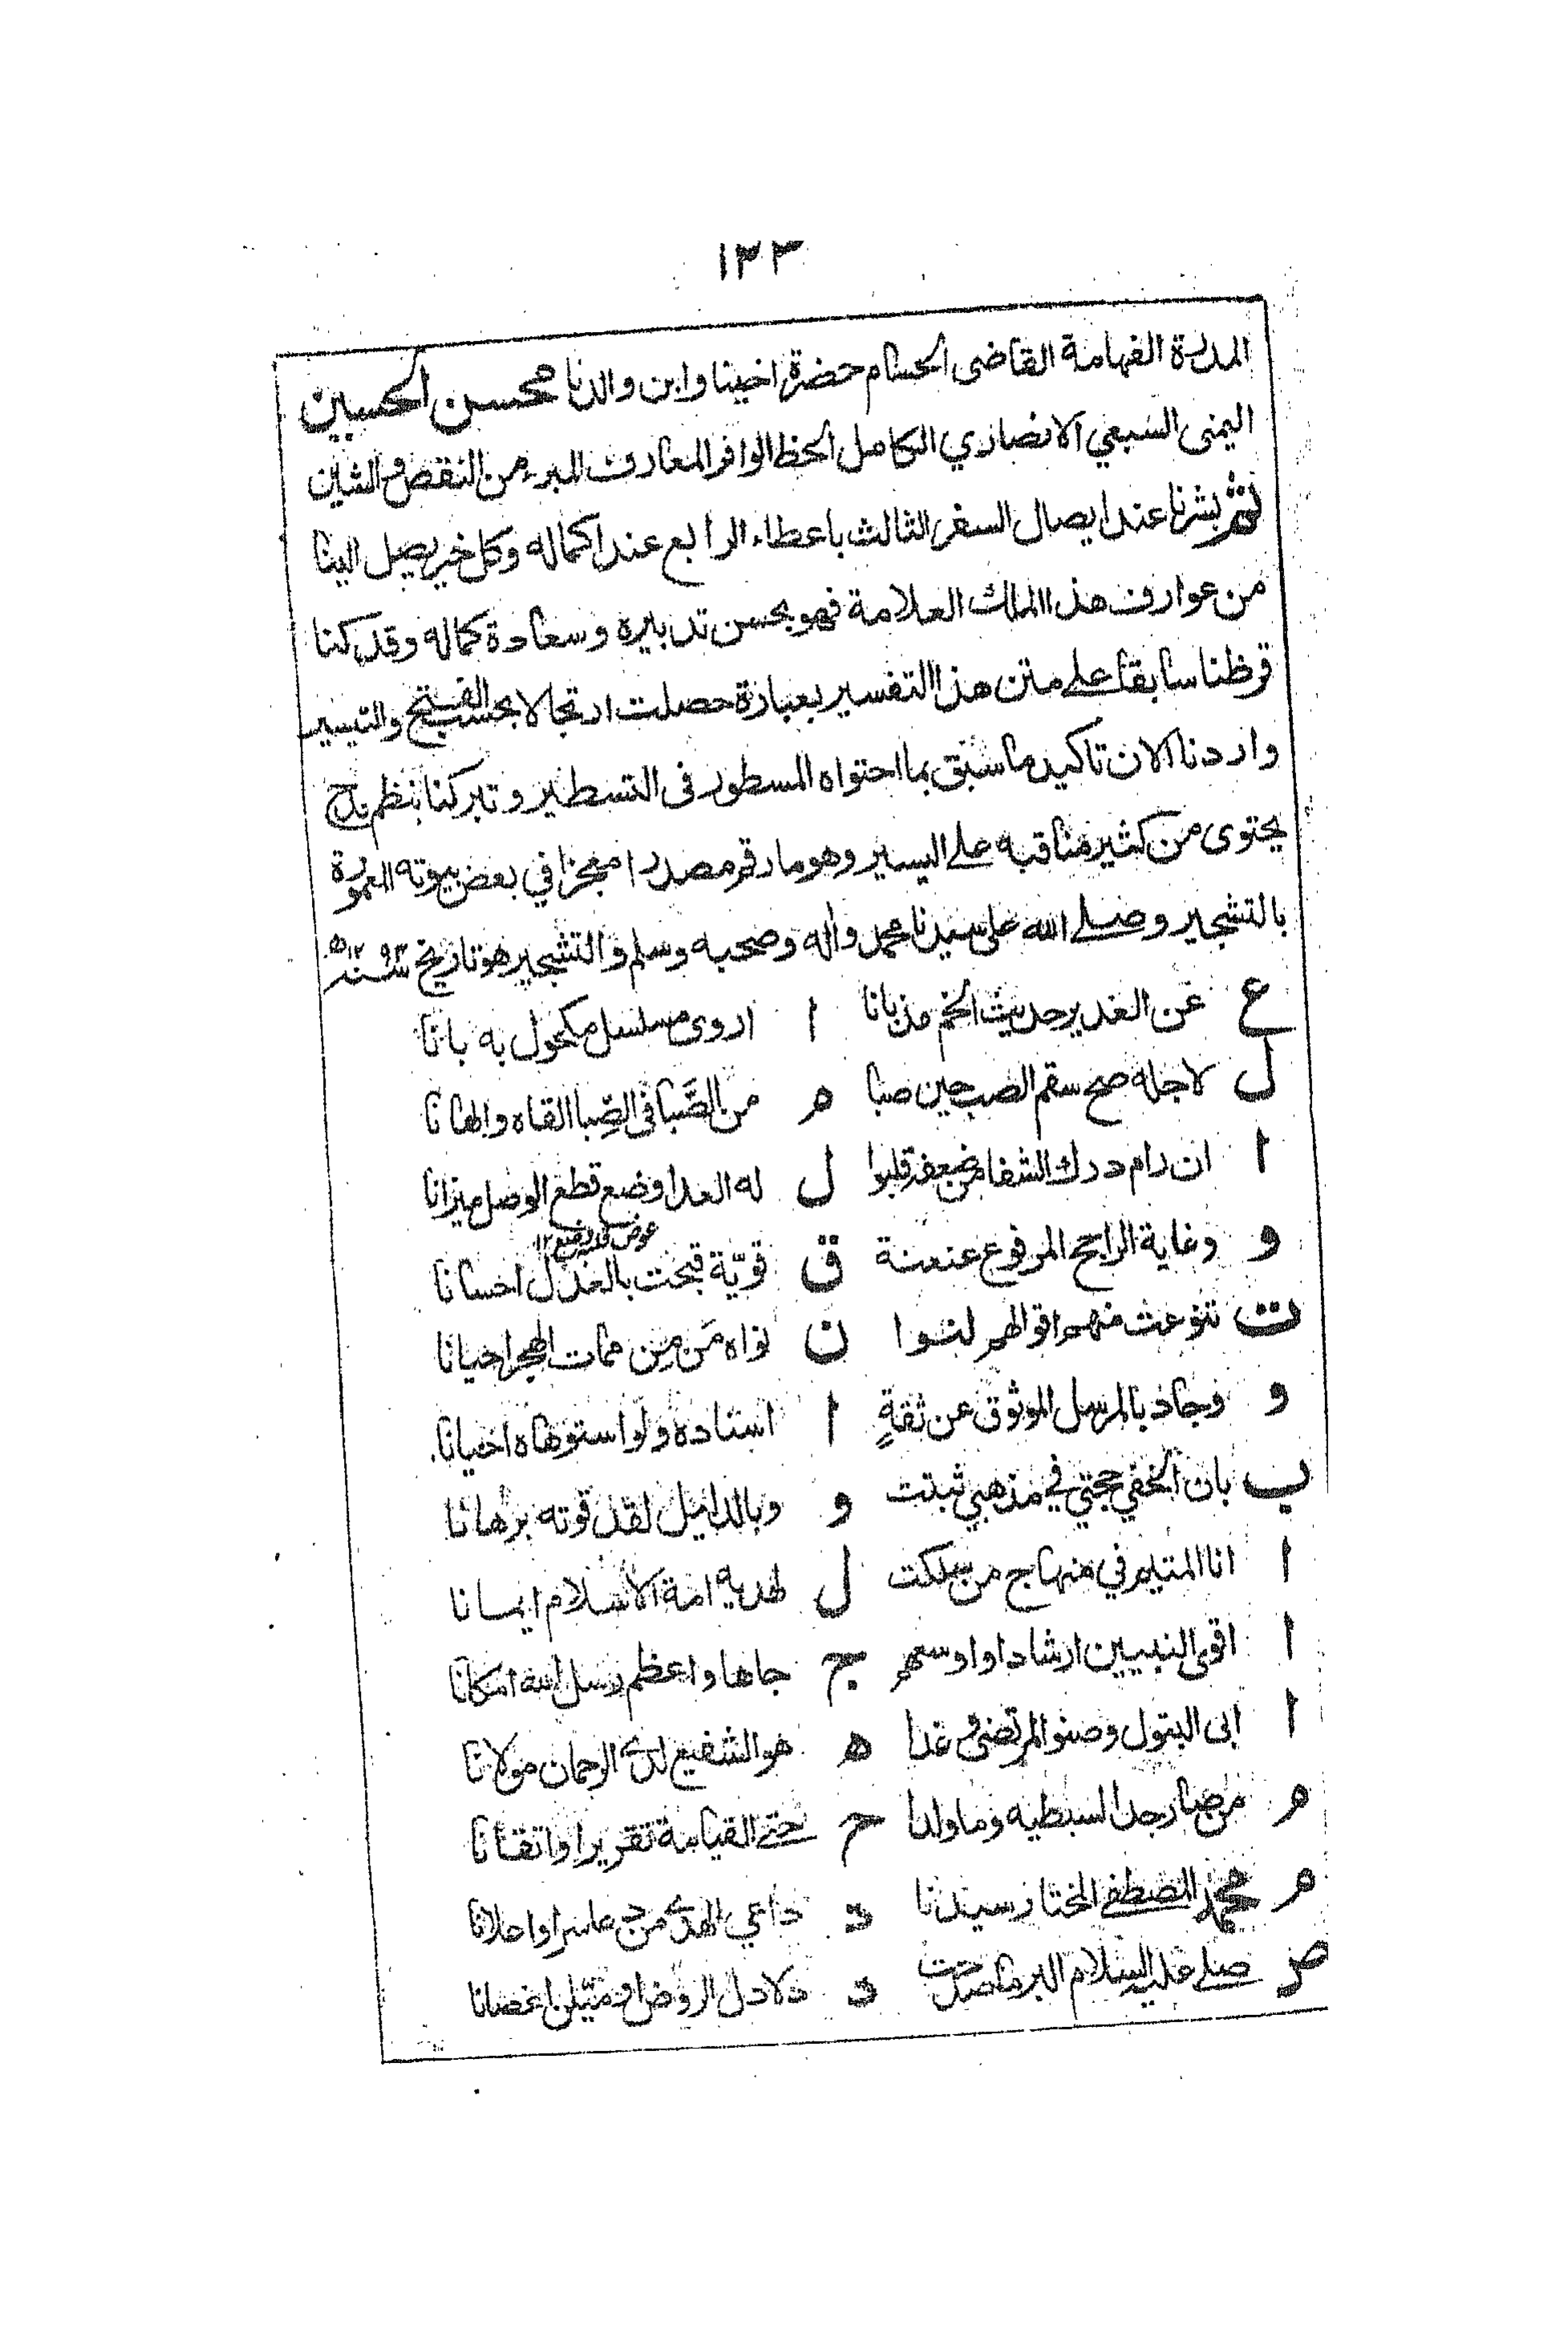 ١٣٣
المدرة الفهامة القاضى الحسام حضرة اخينا وابن والدنا محسن الحسين
اليمنى السبعي الانصاري الكامل الحظ الوافر المعارف المبرء من النقص والشين
ثم بشرنا عند ايصال السفر الثالث باعطاء الرابع عند اكماله وكل خير يصل الينا
من عوارف هذا الملك العلامة فهو بحسن تدبيره وسعادة كماله وقد كنا
قرظنا سابقا على متن هذا التفسير بعبارة حصلت ارتجالا بحسب الفتح والتيسير
واردنا الان تاكيد ما سبق بما احتواه المسطور فى التسطير وتبركنا بنظم مدح
يحتوى من كثير مناقبه على اليسير وهو ما رقم مصدرا معجزا في بعض بيوته المعمورة
بالتشجير وصلى الله على سيدنا محمد واله وصحبه وسلم والتشجير هو تاريخ سنة ١٢٩٣ه
ع عن الغدير حديث الخم مذ بانا ا اروى مسلسل مكحول به بانا
ل لاجله صح سقم الصب حين صبا م من الصَّبا فى الصِّبا القاه والهانا
ا ان رام درك الشفا من ضعفه قلبوا ل له العدا وضع قطع الوصل ميزانا
و وغاية الراجح المرفوع عنعنة ق قويّة قبحت بالعذل احسانا
ت تنوعت منهم اقوالهم لنوا ن نواه مَن مِن ممات الهجر احيانا
و وجاد بالمرسل الموثوق عن ثقةٍ ا اسناده ولو استوهاه احيانا
ب بان الخفي حجتي في مذهبي ثبتت و وبالدليل لقد قوته برهانا
ا انا المتيم في منهاج من سلكت ل لهديه امة الاسلام ايمانا
ا اقوى النبيين ارشادا واوسعهم ج جاها واعظم رسل الله امكانا
ا ابى البتول وصنو المرتضى وغدا ه هو الشفيع لدى الرحمان مولانا
م من صار جد السبطيه وما ولدا ح حتى القيامة تقريرا واتقانا
م محمد المصطفى المختار سيدنا د داعي الهدى من دعا سرا واعلانا
ص صلى عليه السلام البر ما صدحت د دلادل الروض او ميّلن اغصانا